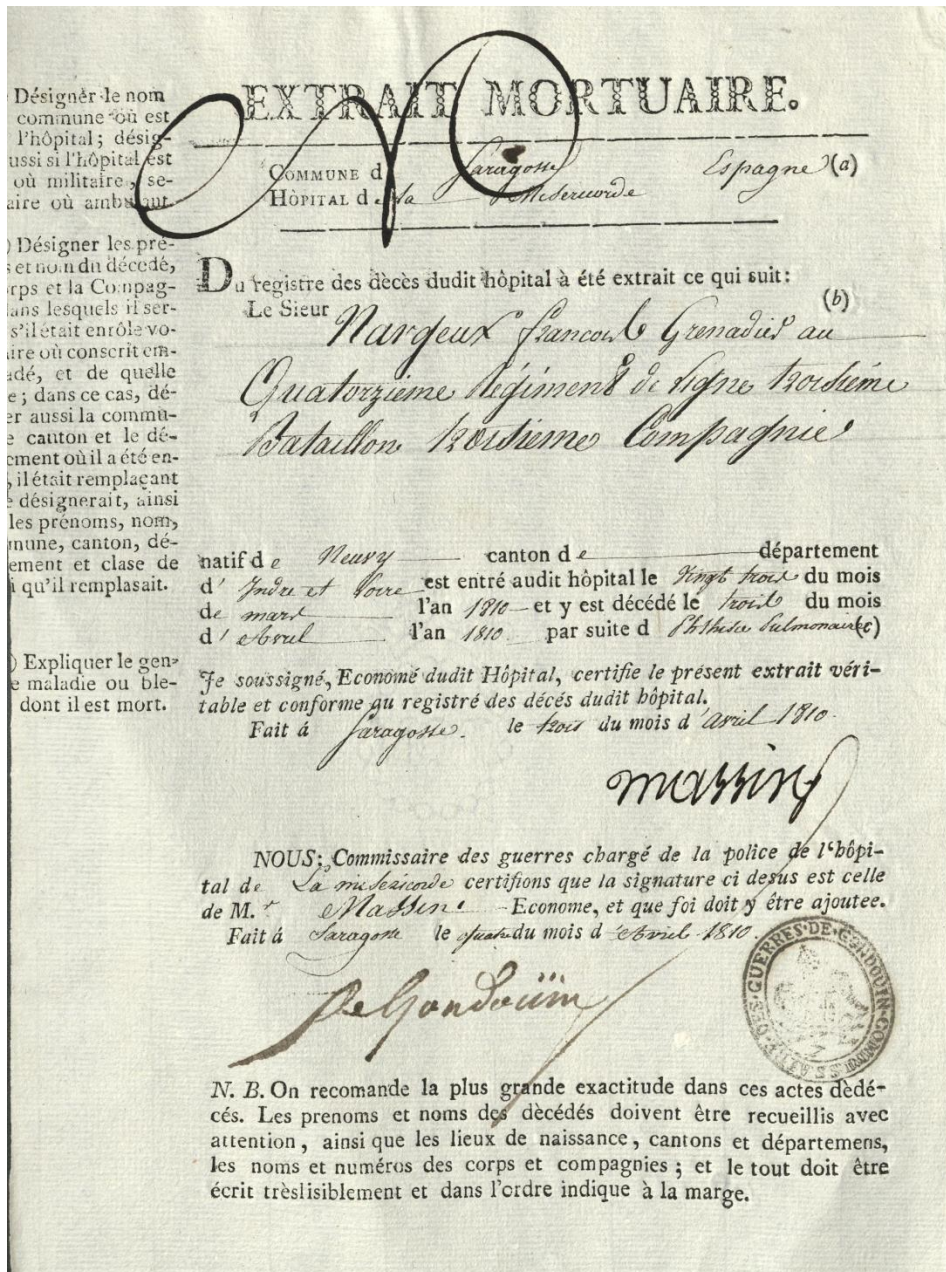 Désigner le nom
commune où est
l'hôpital; désig-
ussi si l'hôpital est
où militaire, se-
aire où ambulant.
) Désigner les pré-
s et nom du décedé,
orps et la Compag-
ans lesquels il ser-
s'il était enrôle vo-
ire où conscrit em-
adé, et de quelle
e; dans ce cas, dé-
er aussi la commu-
e canton et le dé-
ement où il a été en-
, il était remplaçant
e désignerait, ainsi
les prénoms, nom,
mune, canton, dé-
ement et clase de
i qu'il remplasait.
) Expliquer le gen-
e maladie ou ble-
dont il est mort.
EXTRAIT MORTUAIRE.
COMMUNE d Saragosse Espagne (a)
HÔPITAL de la Misericorde
Du registre des dècès dudit hôpital à été extrait ce qui suit:
Le Sieur (b)
Nargeux francois Grenadier au
Quatorzième Régiment de Ligne troisième
Bataillon troisieme Compagnie
natif de Neuvy canton de département
d' Indre et Loire est entré audit hôpital le Vingt trois du mois
de mars l'an 1810 et y est décédé le trois du mois
d' Avril l'an 1810 par suite d Phthisie Pulmonaire (c)
Je soussigné, Econome dudit Hôpital, certifie le présent extrait véri-
table et conforme au registré des décés dudit hôpital.
Fait á Saragosse. le trois du mois d'Avril 1810.
Massine
NOUS: Commissaire des guerres chargé de la police de l'hôpi-
tal de La misericorde certifions que la signature ci desus est celle
de M.r Massine - Econome, et que foi doit y être ajoutee.
Fait á Saragosse le quatre du mois d'Avril 1810.
De Gondoüin
DE GONDOUIN COMMISSAIRE DES GUERRES
N. B. On recomande la plus grande exactitude dans ces actes dèdé-
cés. Les prenoms et noms des dècédés doivent être recueillis avec
attention, ainsi que les lieux de naissance, cantons et départemens,
les noms et numéros des corps et compagnies; et le tout doit être
écrit trèslisiblement et dans l'ordre indique à la marge.